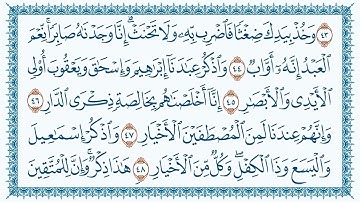 ٤٣ وَخُذْ بِيَدِكَ ضِغْثًا فَاضْرِب بِّهِ وَلَا تَحْنَثْ ۗ إِنَّا وَجَدْنَاهُ صَابِرًا ۚ نِّعْمَ
الْعَبْدُ إِنَّهُ أَوَّابٌ ٤٤ وَاذْكُرْ عِبَادَنَا إِبْرَاهِيمَ وَإِسْحَاقَ وَيَعْقُوبَ أُولِي
الْأَيْدِي وَالْأَبْصَارِ ٤٥ إِنَّا أَخْلَصْنَاهُم بِخَالِصَةٍ ذِكْرَى الدَّارِ ٤٦
وَإِنَّهُمْ عِندَنَا لَمِنَ الْمُصْطَفَيْنَ الْأَخْيَارِ ٤٧ وَاذْكُرْ إِسْمَاعِيلَ
وَالْيَسَعَ وَذَا الْكِفْلِ ۖ وَكُلٌّ مِّنَ الْأَخْيَارِ ٤٨ هَٰذَا ذِكْرٌ ۚ وَإِنَّ لِلْمُتَّقِينَ